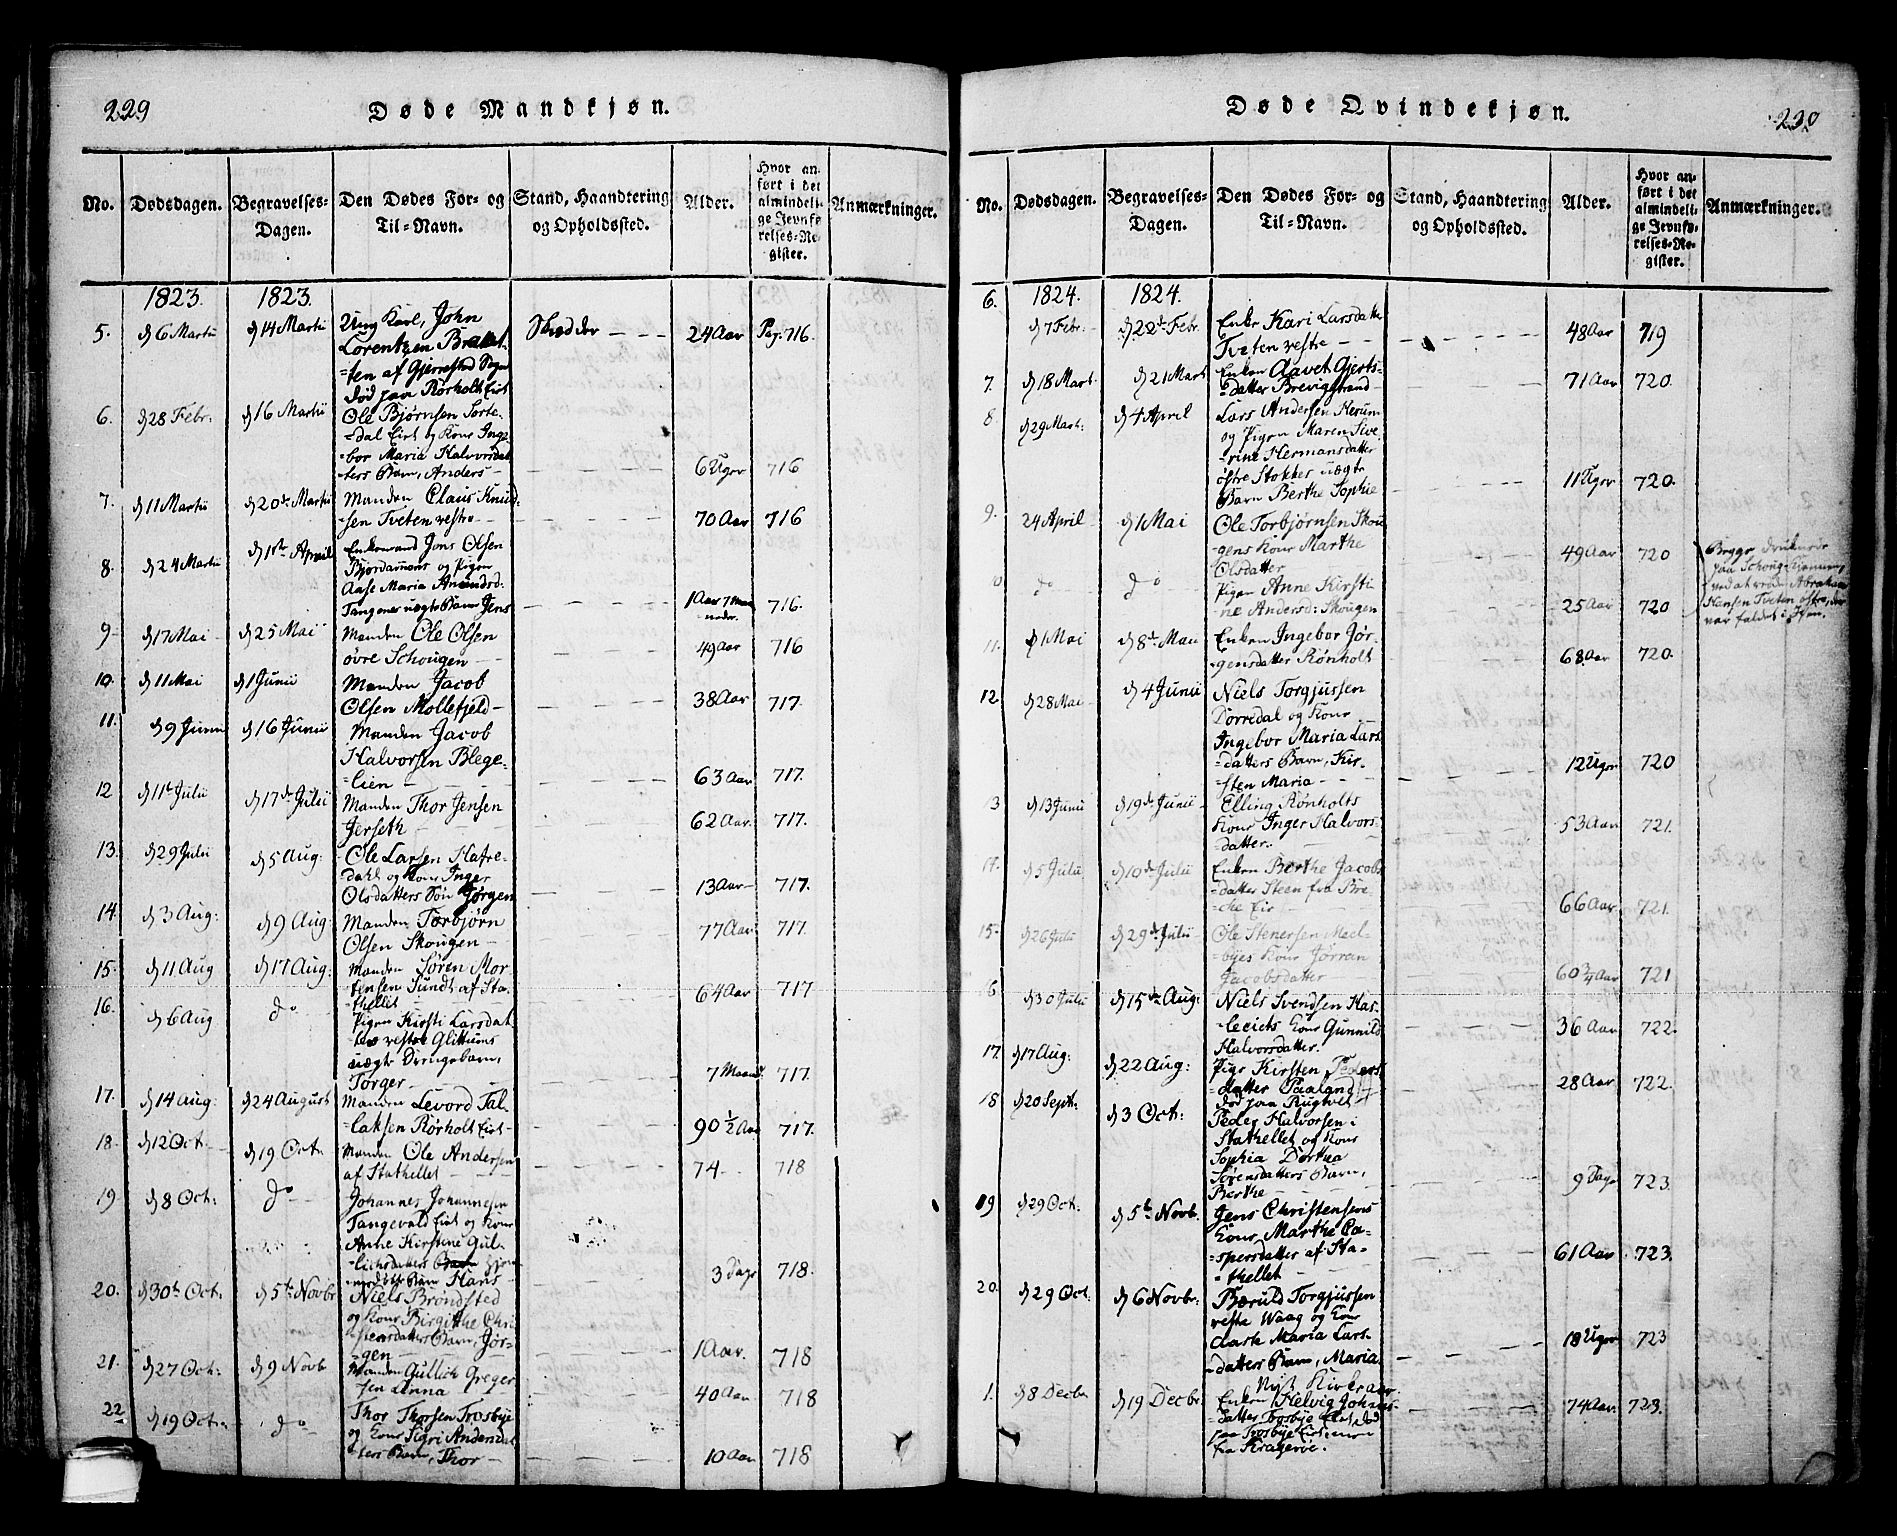 229
Døde Mandkjøn.
No.
Dødsdagen.
Begravelses-
Dagen.
Den Dødes For- og
Til-Navn.
Stand, Haandtering
og Opholdssted.
Alder.
Hvor an-
ført i det
almindeli-
ge Jevnfø-
relses-Re-
gister.
Anmærkninger.
1823. 1823.
5. d 6 Martii d 14 Martii Ung Karl, John Skrædder 24 Aar Pag. 716.
Lorentzen
=ten af Gjerrestad Sogn
død paa Rörholt Eiet
6. d 28 Febr: d 16 Martii Ole Bjørnsen Sorte-
=dal Eiet og Kone Inge-
bor Maria Halvorsdat-
ters Barn, Anders - 6 Uger 716
7. d 11 Martii d 20de Martii Manden Claus Knud-
sen Tveten vestre 70 Aar 716
8. d 24 Martii d 1ste April Enkemand Jens Olsen
og Pigen
Aase Maria
Tangens uægte Barn Jens 1 Aar 7 Maa-
neder. 716.
9 d 17 Mai d 25 Mai Manden Ole Olsen
øvre Schougen 49 Aar 716
10. d 11 Mai d 1 Junii Manden Jacob
Olsen Mollefjeld 38 Aar 717.
11. d 9 Junii d 16 Junii Manden Jacob
Halvorsen Blege-
=lien 63 Aar 717.
12 d 11te Julii d 17de Julii Manden Thor Jensen
Jerseth 62 Aar 717.
13. d 29 Julii d 5 Aug: Ole Larsen Hafre-
dahl og Kone Inger
Olsdatters Søn Jørgen 13 Aar 717.
14. d 3 Aug: d 9 Aug: Manden Torbjørn
Olsen Skougen 77 Aar 717.
15. d 11 Aug d 17 Aug: Manden Søren Mor
tensen Sundt af Sta-
thellet 64 Aar 717
16. d 6 Aug do Pigen Kirsti Larsdat
ters vestre Glittums
uægte Drengebarn,
Torger 7 Maand. 717.
17. d 14 Aug: d 24 August Manden Levord Tal-
laksen Rørholt Eiet 90 ½ Aar 717.
18. d 12 Oct d 19 Oct. Manden Ole Andersen
af Stathellet 74 718
19 d 8 Oct: do Johannes Johannesen
Tangevald Eiet og Kone
Anne Kirstine Gul-
lichsdatters Barn
Barn Hans 3 Dage 718.
20. d 30te Oct: d 5te Novbr Niels Brøndsted
og Kone Birgithe Chri
=stensdatters Barn, Jør-
gen 1 Aar. 718
21. d 27 Oct: d 9 Novb Manden Gullich Greger
sen Linna 40 Aar 718
22 d 19 Oct: do Thor Thorsen Trosbye
og Kone Sigri Andersdat
ters Barn, Thor 10 Aar 718
Døde Qvindekjøn.
230
No.
Dødsdagen.
Begravelses-
Dagen.
Den Dødes For- og
Til-Navn.
Stand, Haandtering
og Opholdssted.
Alder.
Hvor an-
ført i det
almindeli-
ge Jevnfø-
relses-Re-
gister.
Anmærkninger.
1824. 1824.
6. d 7 Febr: d 22de Febr. Enke Kari Larsdatter
Tveten vestre 48 Aar 719
7. d 18 Mart. d 21 Mart Enken Aavet Gjerts-
=datter Brevigstrand 71 Aar 720.
8. d 29 Mart: d 4 April Lars Andersen Herum
og Pigen Maren Sive-
rine Hermansdatter
østre Stokkes uægte
Barn Berthe Sophie 11 Uger 720.
9. 24 April d 1 Mai Ole Torbjørnsen Skou
gens Kone Marthe
Olsdatter 49 Aar 720
10 do do Pigen Anne Kirsti
ne Andersd: Skougen 25 Aar 720
Begge druknede
paa Schoug-Tjennen,
ved at redde Abraham
Hansen Tveten østre, der
var faldet i Isen.
11. d 1 Mai d 8de Mai Enken Ingebor Jør-
gensdatter Rønholt 68 Aar 720.
12 d 28 Mai d 4 Junii Niels Torgjussen
Dørredal og Kone
Ingebor Maria Lars
datters Barn, Kir-
sten Maria 12 Uger 720
13 d 13 Junii d 19de Junii Elling Rønholts
Kone Inger Halvors-
datter. 53 Aar 721.
14. d 5 Julii d 10de Julii Enken Berthe Jacobs
=datter Steen fra Bre-
=che Eie 66 Aar 721.
15. d 26 Julii d 29de Julii Ole Stenersen Mæl-
byes Kone Jørran
Jacobsdatter 60 ¾ Aar 721
16 d 30 Julii d 15de Aug: Niels Svendsen Has-
Kone Gunnild
Halvorsdatter. 36 Aar 722.
17. d 17 Aug: d 22 Aug: Pige Kirsten Peders
datter Paaland
død paa Rugtvet 28 Aar 722.
18 d 20 Sept: d 3 Oct: Peder Halvorsen i
Stathellet og Kone
Sophia Dorthea
Sørensdatters Barn,
Berthe 9 Dage 723.
19 d 29 Oct: d 5te Novb. Jens Christensens
Kone Marthe Ca-
=spersdatter af Sta-
=thellet 61 Aar 723.
20. d 29 Oct: d 6 Novbr: Bæruld Torgjussen
vestre Waag og Kone
Maria Lars-
=datters Barn, Maria 18 Uger 723
Nyt Kirkeaar
1. d 8 Decbr d 19 Decbr: Enken Helvig Johans-
datter Trosbye Eiet, død
paa Trosbye Eiet,
fra Kragerøe. 74 Aar 723.